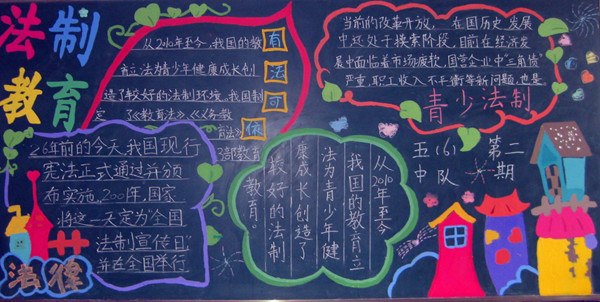 法制
教育
从2010年至今,我国的教
育立法为青少年健康成长创
造了较好的法制环境,我国制
定了《教育法》《义务教
育法》
等部教育
有
法
可
依
当前的改革开放,在国历史发展
中还处于摸索阶段,目前在经济发
展中面临着市场疲软,国营企业中"三角债"
严重,职工收入不平衡等新问题,也是
青少法制
26年前的今天,我国现行
宪法正式通过并颁
布实施。2001年,国家
将这一天定为全国
法制宣传日,
并在全国举行
法律
从2010年至今
我国的教育立
法为青少年健
康成长创造了
较好的法制
教育。
五(6)
中队
第二
期